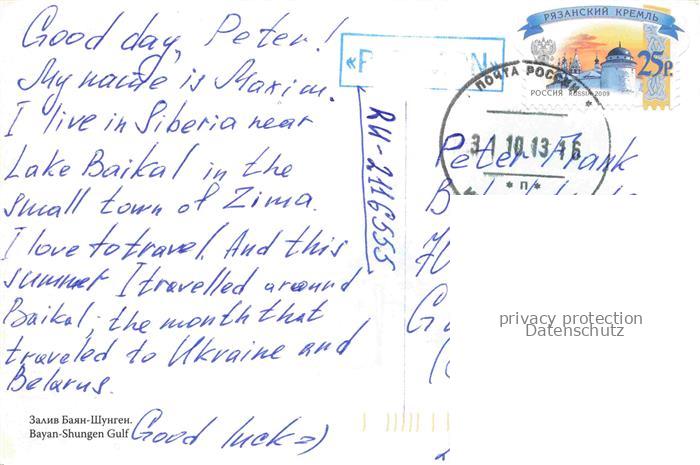 Good day, Peter!
My name is Maxim.
I live in Siberia near
Lake Baikal in the
small town of Zima.
I love to travel. And this
summer I travelled around
Baikal, the month that
traveled to Ukraine and
Belarus.
Good luck =)
Залив Баян-Шунген.
Bayan-Shungen Gulf
RU-2116555
РЯЗАНСКИЙ КРЕМЛЬ
25р.
РОССИЯ RUSSIA·2009
ПОЧТА РОССИИ
31 10 13 16
* П *
Peter Frank
privacy protection
Datenschutz